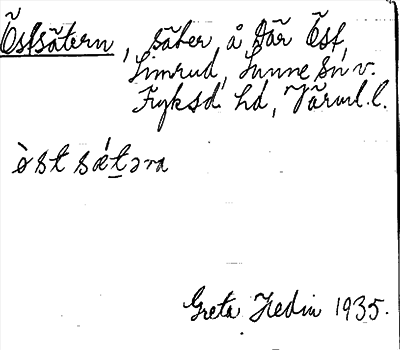 Östsätern, säter å där Öst,
Limrud, Sunne sn v.
Fryksd. hd, Värml. l.
ò st sǽt̲əra
Greta Hedin 1935.